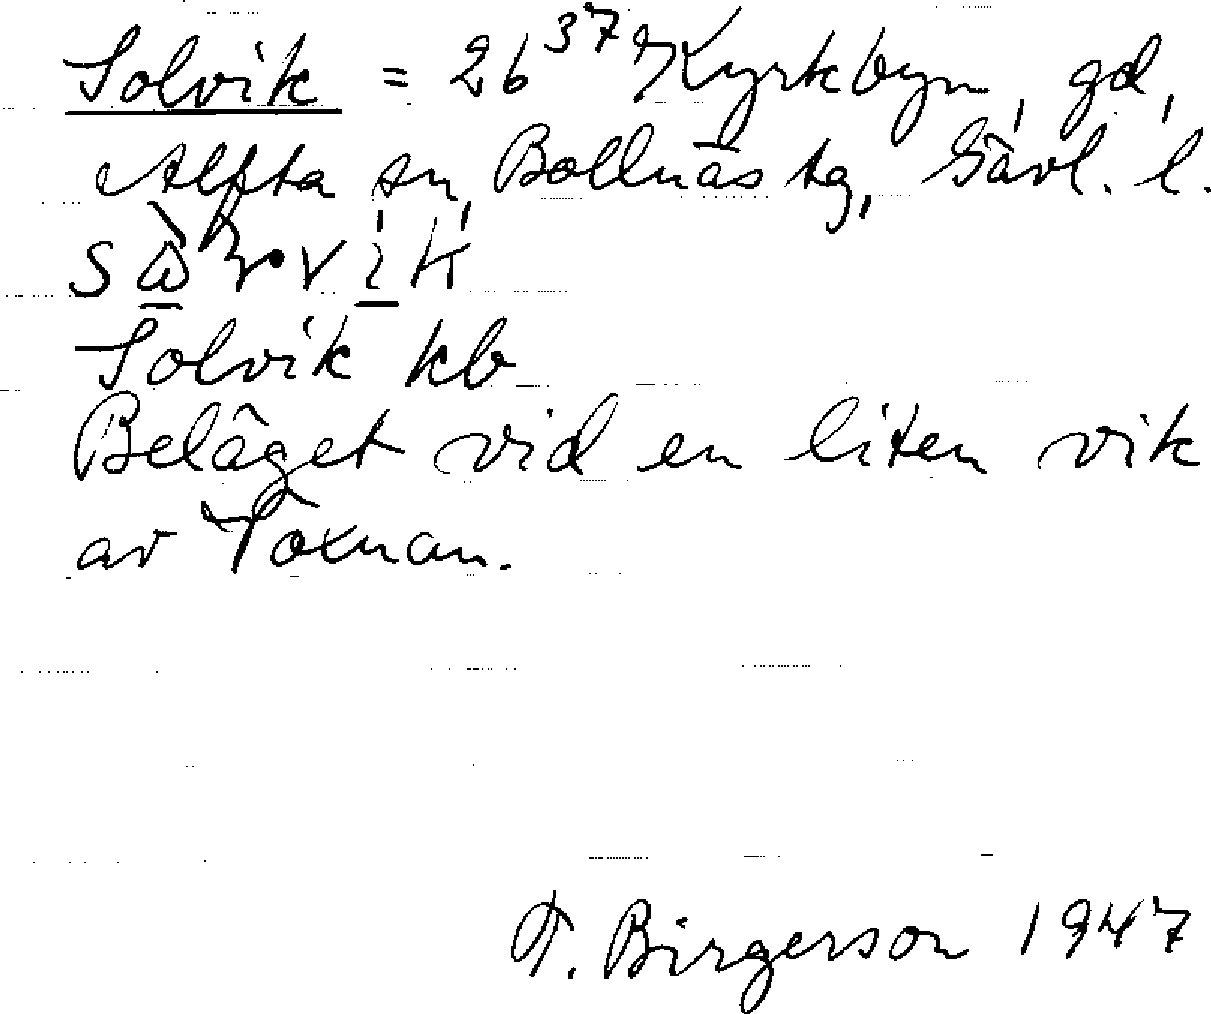 Solvik = 26³⁷ Kyrkbyn, gd,
Alfta sn, Bollnäs tg, Gävl. l.
Solvik kb
Beläget vid en liten vik
av Voxnan.
F. Birgerson 1947